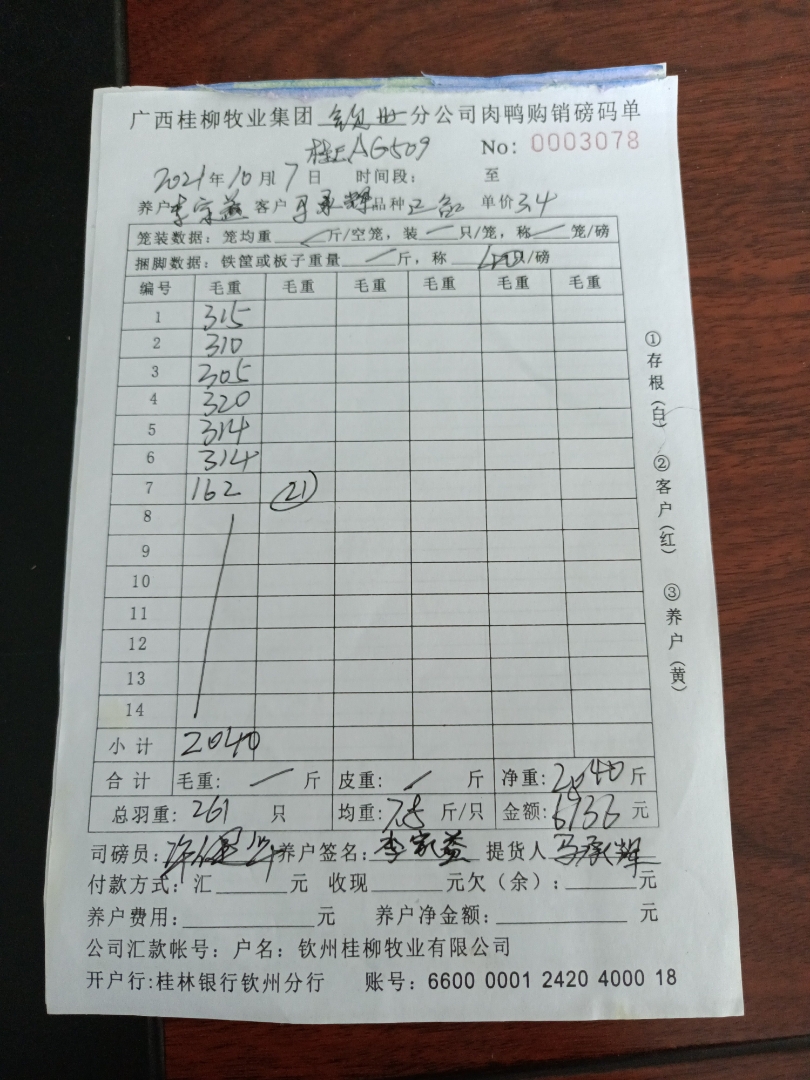 广西桂柳牧业集团 钦州 分公司肉鸭购销磅码单
AG509 No: 0003078
2021年10月7日 时间段: 至
养户 李家益 客户 马承辉 品种 单价 3.4
笼装数据: 笼均重 斤/空笼, 装 只/笼, 称 笼/磅
捆脚数据: 铁筐或板子重量 斤, 称 40只/磅
编号 毛重 毛重 毛重 毛重 毛重 毛重
1 315
2 310
3 305
4 320
5 314
6 314
7 162 (21)
8
9
10
11
12
13
14
小计 2040
合计 毛重: 斤 皮重: 斤 净重: 2040 斤
总羽重: 261 只 均重: 斤/只 金额: 6936 元
司磅员: 养户签名: 李家益 提货人 马承辉
付款方式: 汇 元 收现 元欠(余): 元
养户费用: 元 养户净金额: 元
公司汇款帐号: 户名: 钦州桂柳牧业有限公司
开户行:桂林银行钦州分行 账号: 6600 0001 2420 4000 18
①存根(白) ②客户(红) ③养户(黄)